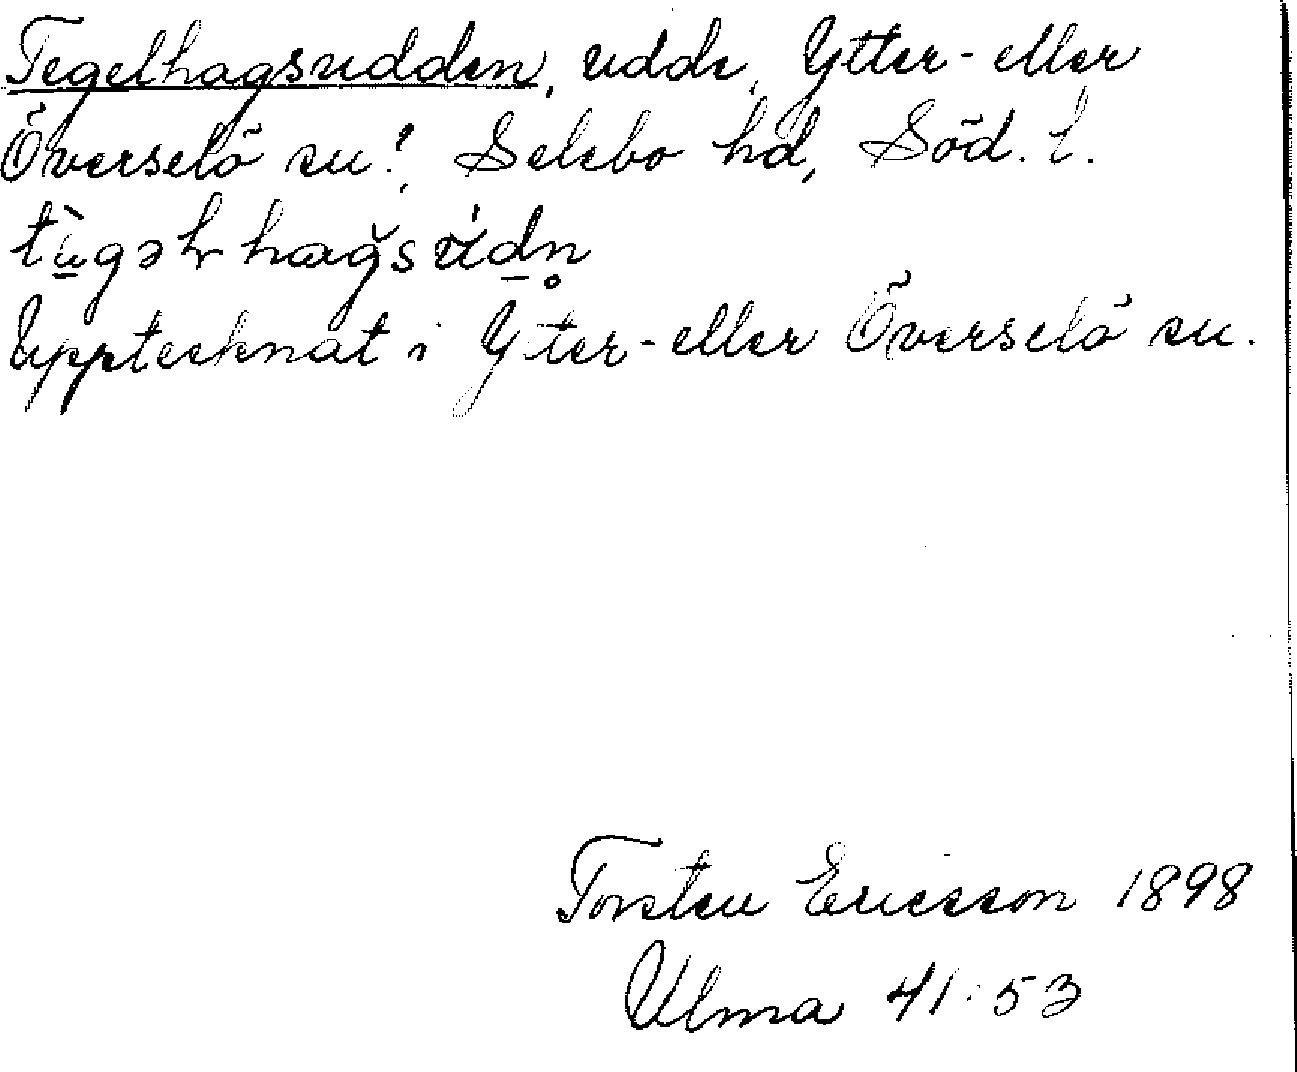 Tegelhagsudden, udde, Ytter- eller
Överselö sn!, Selebo hd, Söd. l.
Upptecknat i Ytter- eller Överselö sn.
Torsten Ericsson 1898
Ulma 41:53